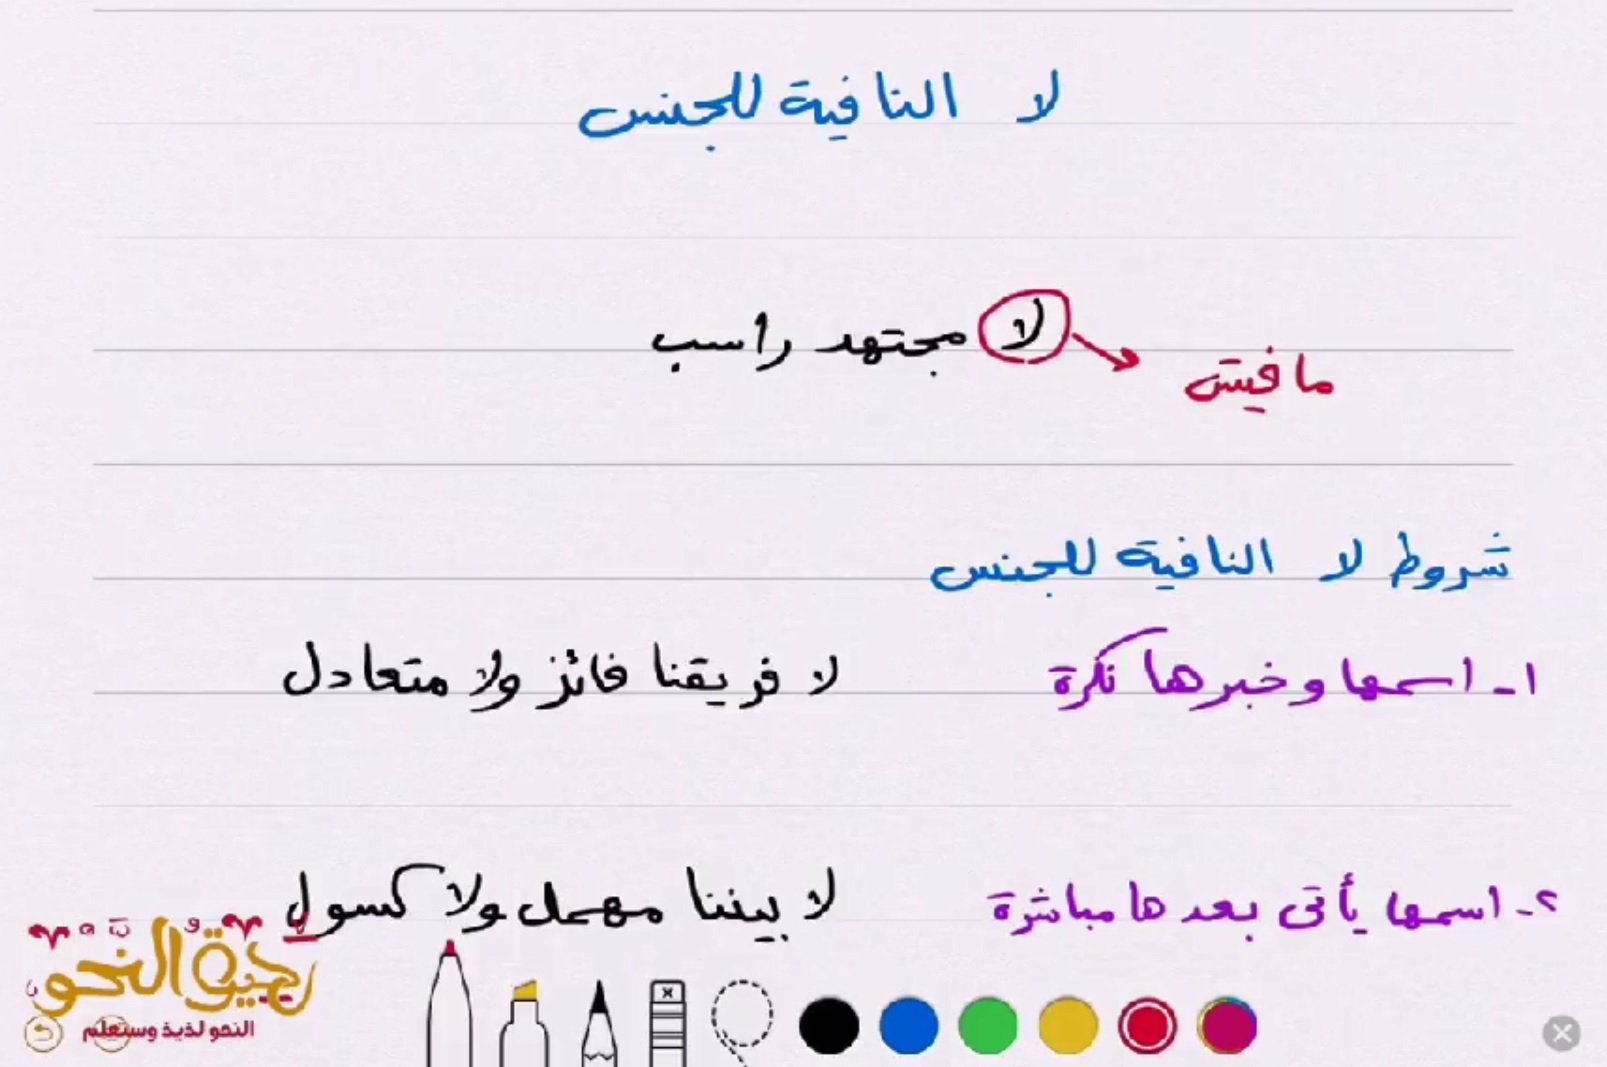 لا النافية للجنس
لا مجتهد راسب
مافيش
شروط لا النافية للجنس
١- اسمها وخبرها نكرة
لا فريقنا فائز ولا متعادل
٢- اسمها يأتى بعدها مباشرة
لا بيننا مهمل ولا كسول
رحيق النحو
النحو لذيذ وستعلم